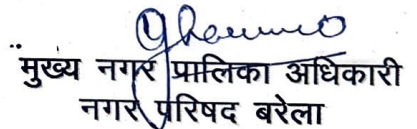 मुख्य नगर पालिका अधिकारी
नगर परिषद बरेला